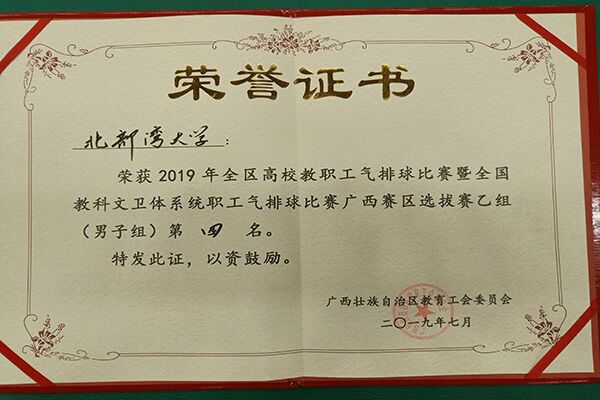 荣誉证书
北部湾大学：
荣获2019年全区高校教职工气排球比赛暨全国
教科文卫体系统职工气排球比赛广西赛区选拔赛乙组
（男子组）第四名。
特发此证，以资鼓励。
广西壮族自治区教育工会委员会
二〇一九年七月